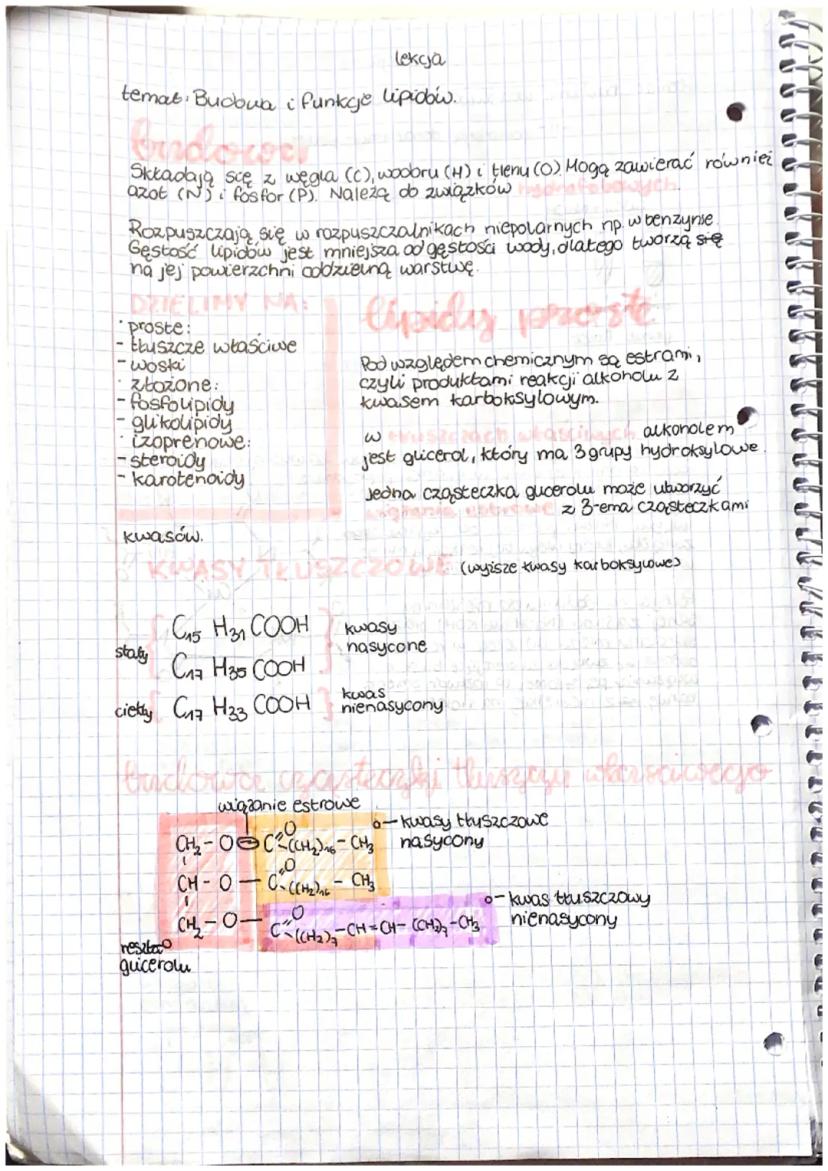 lekcja
temat: Budowa i funkcje lipidów.
budowa
Składają się z węgla (C), wodoru (H) i tlenu (O). Mogą zawierać również
azot (N) i fosfor (P). Należą do związków hydrofobowych.
Rozpuszczają się w rozpuszczalnikach niepolarnych np. w benzynie.
Gęstość lipidów jest mniejsza od gęstości wody, dlatego tworzą się
na jej powierzchni oddzielną warstwę.
DZIELIMY NA:
· proste:
- tłuszcze właściwe
- woski
· złożone:
- fosfolipidy
- glikolipidy
· izoprenowe:
- steroidy
- karotenoidy
lipidy proste
Pod względem chemicznym są estrami,
czyli produktami reakcji alkoholu z
kwasem karboksylowym.
w tłuszczach właściwych alkoholem
jest glicerol, który ma 3 grupy hydroksylowe.
Jedna cząsteczka glicerolu może utworzyć
wiązania estrowe z 3-ema cząsteczkami
kwasów.
KWASY TŁUSZCZOWE (wyższe kwasy karboksylowe)
stały
C₁₅ H₃₁ COOH
C₁₇ H₃₅ COOH
kwasy
nasycone
ciekły C₁₇ H₃₃ COOH kwas
nienasycony
budowa cząsteczki tłuszczu właściwego
wiązanie estrowe
CH₂ - O - C=O -(CH₂)₁₆ - CH₃
kwasy tłuszczowe
nasycony
CH - O - C=O -(CH₂)₁₆ - CH₃
CH₂ - O - C=O -(CH₂)₇ - CH = CH - (CH₂)₇ - CH₃
kwas tłuszczowy
nienasycony
reszta
glicerolu